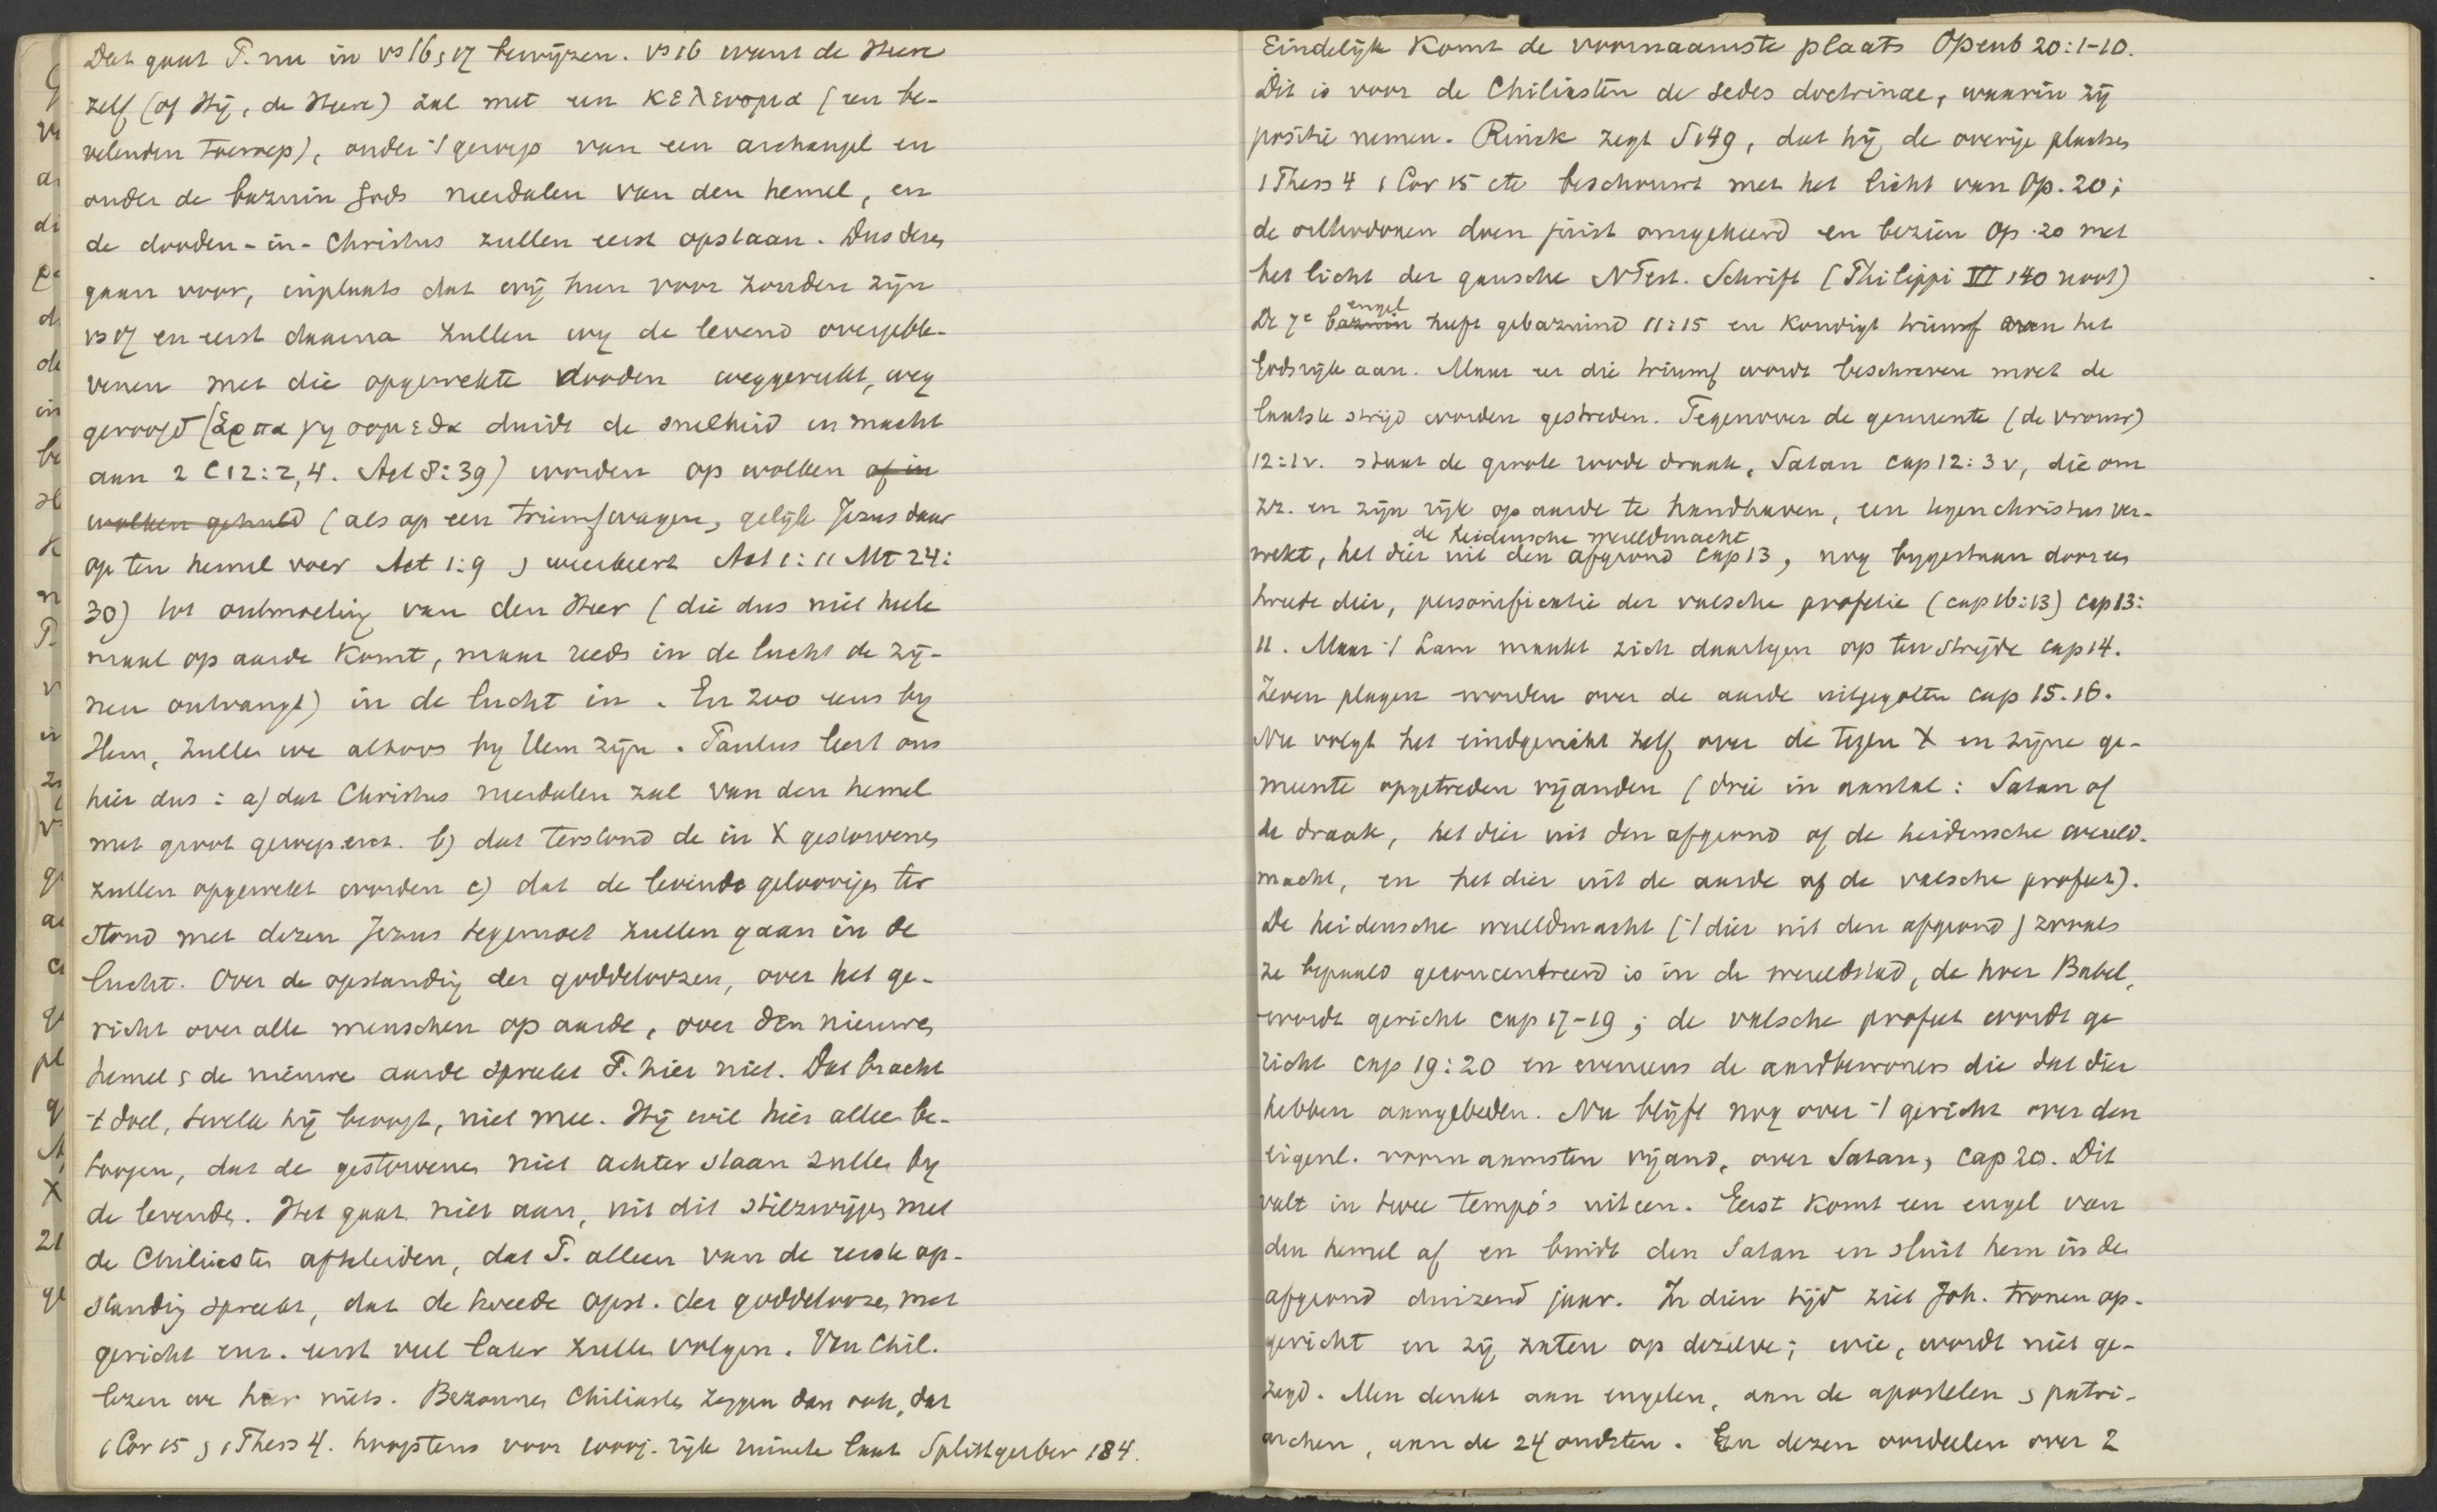 Dat gaat P. nu in vs 16, 17 bewijzen. vs 16 want de Heere
zelf (of Hij, de Heere) zal met een κελευσμα (een be-
velenden toeroep), onder 't geroep van een archangel en
onder de bazuin Gods neerdalen van den hemel, en
de dooden-in-Christus zullen eerst opstaan. Dus deze
gaan voor, inplaats dat wij hun voor zouden zijn
vs 17 en eerst daarna zullen wy de levend overgeble-
venen met die opgewekte dooden weggerukt, weg
geroofd (ἁρπαγησομεθα duidt de snelheid en macht
aan 2 C 12:2,4. Act 8:39) worden op wolken of in
wolken gehuld (als op een triumfwagen, gelijk Jezus daar
op ten hemel voer Act 1:9 , weerkeert Act 1:11 Mt 24:
30) tot ontmoeting van den Heer (die dus niet hele
maal op aarde komt, maar reeds in de lucht de zij-
nen ontvangt) in de lucht in. En zoo eens by
Hem, zullen we altoos by Hem zijn. Paulus leert ons
hier dus: a) dat Christus neerdalen zal van den hemel
met groot geroep enz. b) dat terstond de in X gestorvenen
zullen opgewekt worden c) dat de levende geloovigen ter
stond met dezen Jezus tegemoet zullen gaan in de
lucht. Over de opstanding der goddeloozen, over het ge-
richt over alle menschen op aarde, over den nieuwen
hemel , de nieuwe aarde spreekt P. hier niet. Dat bracht
't doel, hetwelk hij beoogt, niet mee. Hij wil hier alleen be-
toogen, dat de gestorvenen niet achter staan zullen by
de levenden. Het gaat niet aan, uit dit stilzwijgen met
de Chiliasten afteleiden, dat P. alleen van de eerste op-
standing spreekt, dat de tweede opst. der goddeloozen met
gericht enz. eerst veel later zullen volgen. Van Chil.
lezen we hier niets. Bezonnen Chiliasten zeggen dan ook, dat
1 Cor 15 , 1 Thess 4. hoogstens voor 1000j. rijk ruimte laat Splittgerber 184.
Eindelijk komt de voornaamste plaats Openb 20:1-10.
Dit is voor de Chiliasten de sedes doctrinae, waarin zij
positie nemen. Rinck zegt S 149, dat hij de overige plaatsen
1 Thess 4 1 Cor 15 etc beschouwt met het licht van Op. 20;
de orthodoxen doen juist omgekeerd en bezien Op. 20 met
het licht der gansche NTest. Schrift (Philippi VI 140 noot)
engel
De 7e bazuin heeft gebazuind 11:15 en kondigt triumf van het
Godsrijk aan. Maar eer die triumf wordt beschreven moet de
laatste strijd worden gestreden. Tegenover de gemeente (de vrouw)
12:1v. staat de groote roode draak, Satan cap 12:3v, die om
zr. en zijn rijk op aarde te handhaven, een tegenchristus ver-
de heidensche wereldmacht
wekt, het dier uit den afgrond cap 13, nog bygestaan door een
tweede dier, personificatie der valsche profetie (cap 16:13) cap 13:
11. Maar 't Lam maakt zich daartegen op ten strijde cap 14.
Zeven plagen worden over de aarde uitgegoten cap 15.16.
Nu volgt het eindgericht zelf over de tegen X en zijne ge-
meente opgetreden vijanden (drie in aantal: Satan of
de draak, het dier uit den afgrond of de heidensche wereld-
macht, en het dier uit de aarde of de valsche profeet).
De heidensche wereldmacht ('t dier uit den afgrond) zooals
ze bepaald geconcentreerd is in de wereldstad, de hoer Babel,
wordt gericht cap 17-19; de valsche profeet wordt ge
richt cap 19:20 en eveneens de aardbewoners die dat dier
hebben aangebeden. Nu blijft nog over 't gericht over den
eigenl. voornaamsten vijand, over Satan, cap 20. Dit
valt in twee tempo's uiteen. Eerst komt een engel van
den hemel af en bindt den Satan en sluit hem in den
afgrond duizend jaar. In dien tijd ziet Joh. tronen op-
gericht en zij zaten op dezelve; wie, wordt niet ge-
zegd. Men denkt aan engelen, aan de apostelen , patri-
archen, aan de 24 oudsten. En dezen oordeelen over 2